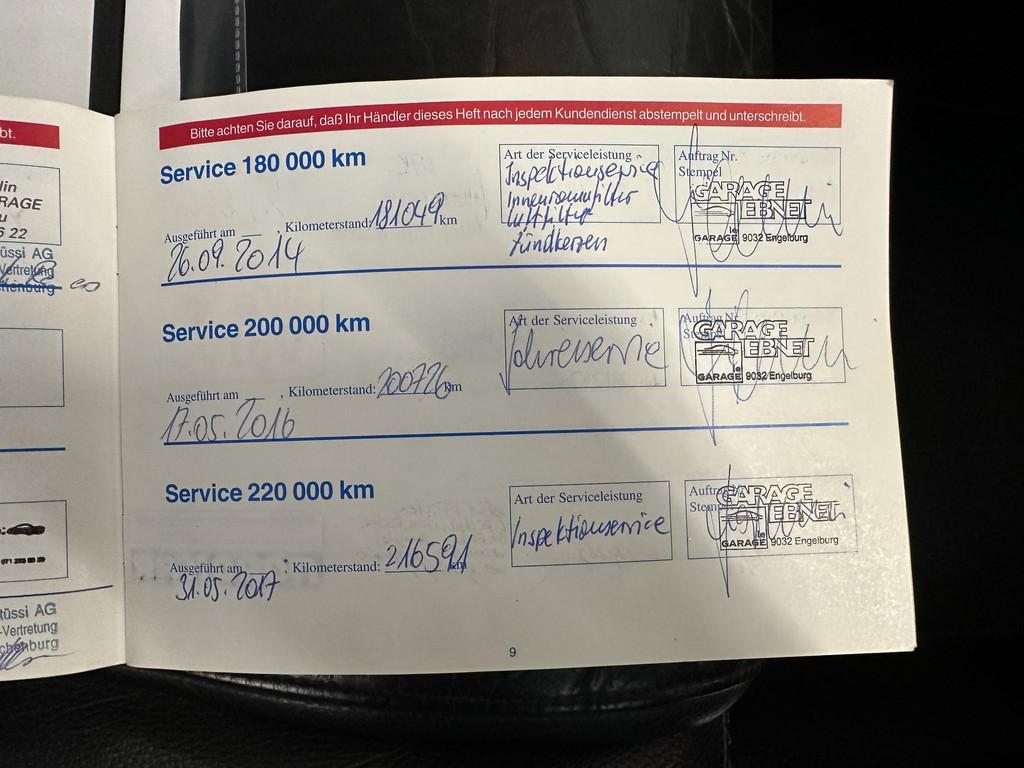 bt.
lin
RAGE
u
6 22
üssi AG
Vertretung
henburg
071 288 80 20
tüssi AG
-Vertretung
chenburg
Bitte achten Sie darauf, daß Ihr Händler dieses Heft nach jedem Kundendienst abstempelt und unterschreibt.
Service 180 000 km
Ausgeführt am , Kilometerstand: 181049 km
26.09.2014
Art der Serviceleistung
Inspektionservice
Innenraumfilter
Luftfilter
Zündkerzen
Auftrag Nr.
Stempel
GARAGE
EBNET
GARAGE 9032 Engelburg
Service 200 000 km
Ausgeführt am , Kilometerstand: 200726 km
17.05.2016
Art der Serviceleistung
Jahresservice
Auftrag Nr.
GARAGE
EBNET
GARAGE 9032 Engelburg
Service 220 000 km
Ausgeführt am , Kilometerstand: 216591 km
31.05.2017
Art der Serviceleistung
Inspektionservice
GARAGE
EBNET
GARAGE 9032 Engelburg
9